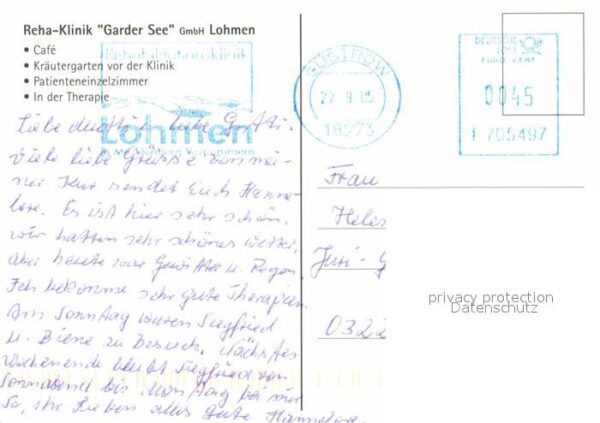 Reha-Klinik "Garder See" GmbH Lohmen
• Café
• Kräutergarten vor der Klinik
• Patienteneinzelzimmer
• In der Therapie
Rehabilitationsklinik
Lohmen
Mecklenburg-Vorpommern
GÜSTROW
27.9.05
18273
DEUTSCHE
POST
EURO CENT
0045
F 705497
Liebe liebe
Viele liebe Grüsse von mei-
ner Kur sendet Euch Hanne-
lore. Es ist hier sehr schön,
wir hatten sehr schönes Wetter,
aber heute war Gewitter u. Regen
Ich bekomme sehr gute Therapien.
Am Sonntag waren Siegfried
u. Biene zu Besuch. Nächstes
Wochenende bleibt Siegfried von
Sonnabend bis Montag bei mir
So, ihr Lieben alles Gute Hannelore.
Frau
Heles
Juri-G
0322
privacy protection
Datenschutz